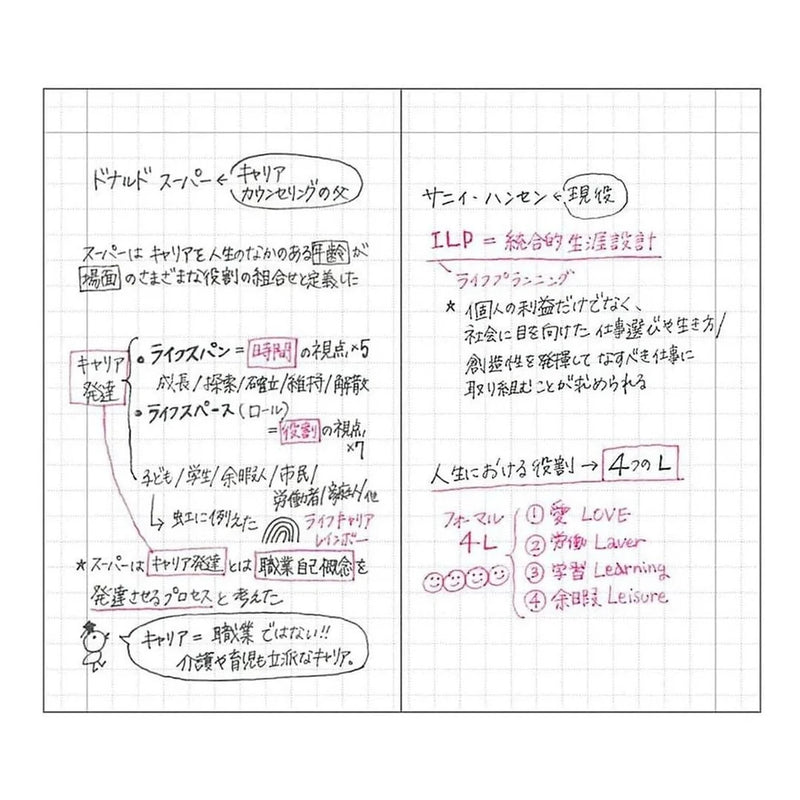 ドナルド スーパー ← キャリア
カウンセリングの父
スーパーは キャリアを人生のなかのある年齢が
場面のさまざまな役割の組合せと定義した
キャリア
発達
• ライフスパン = 時間の視点 ×5
成長/探索/確立/維持/解散
• ライフスペース(ロール)
= 役割の視点
×7
子ども/学生/余暇人/市民/
労働者/家庭人/他
↳ 虹に例えた
ライフキャリア
レインボー
* スーパーは キャリア発達とは 職業自己概念を
発達させるプロセスと考えた
キャリア = 職業ではない!!
介護や育児も立派なキャリア。
サニィ・ハンセン ← 現役
ILP = 統合的生涯設計
ライフプランニング
* 個人の利益だけでなく、
社会に目を向けた仕事選びや生き方/
創造性を発揮してなすべき仕事に
取り組むことが求められる
人生における役割 → 4つのL
フォーマル
4-L
① 愛 LOVE
② 労働 Laver
③ 学習 Learning
④ 余暇 Leisure